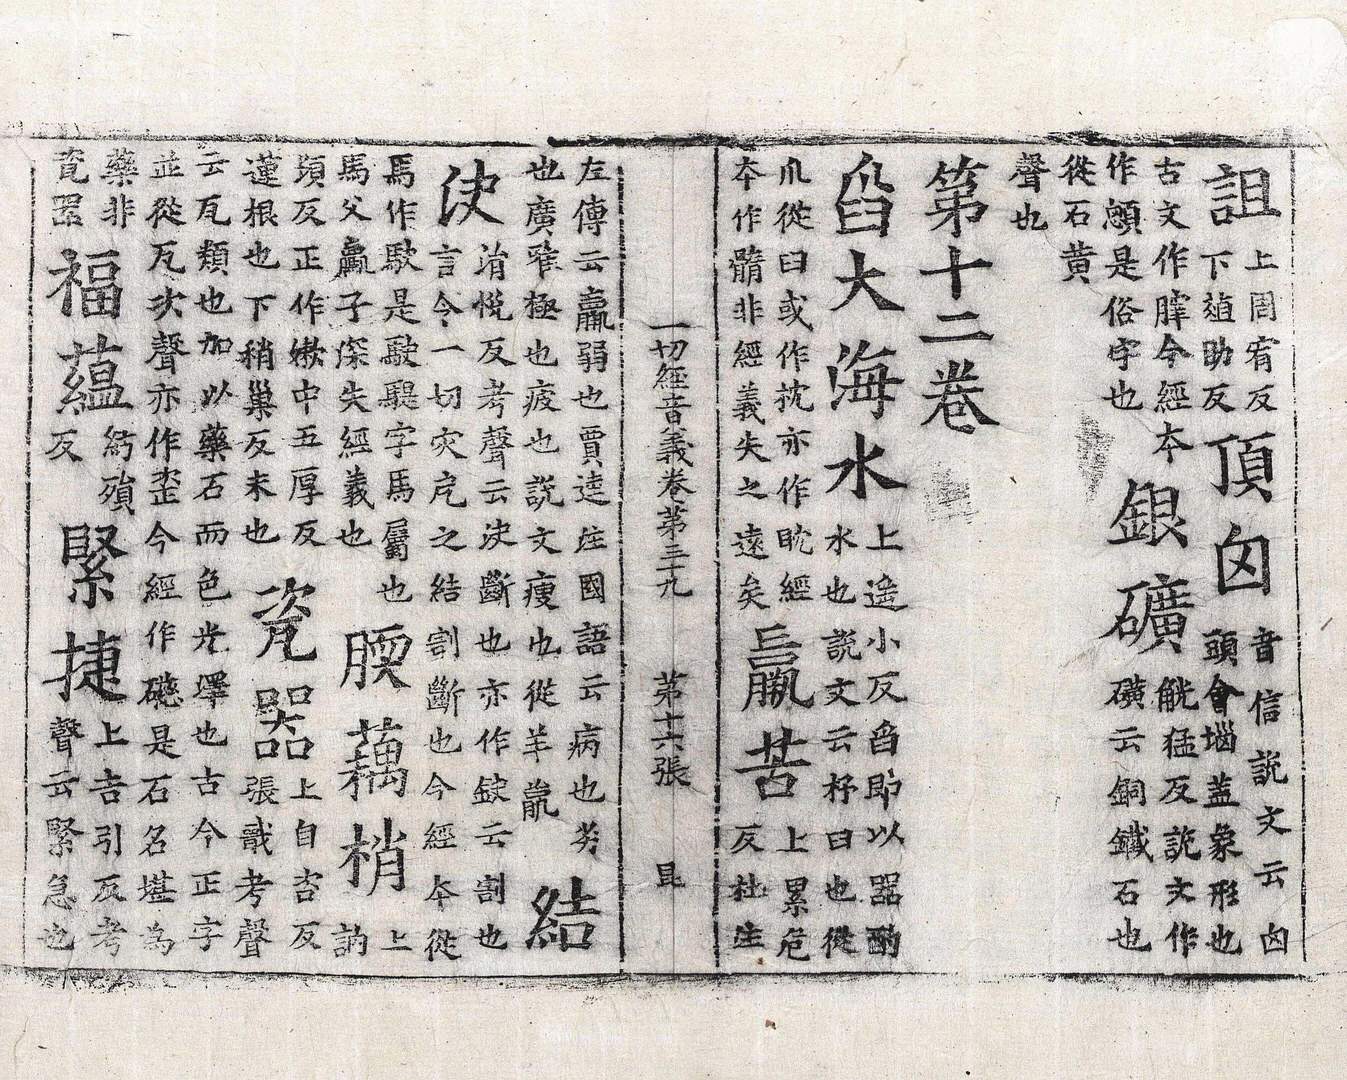 詛
上周宥反
下葅助反
頂囟
音信說文云囟
頭會堖蓋象形也
古文作䐉今經本
作顖是俗字也
銀礦
觥猛反說文作
礦云銅鐵石也
從石黄
聲也
第十二卷
舀大海水
上遥小反舀即以器酌
水也說文云杼臼也從
爪從臼或作抭亦作眈經
本作髓非經義失之遠矣
羸苦
上累危
反杜注
一切經音義卷第三十九 第十六張 昆
左傳云羸弱也賈逵注國語云病也劣
也廣雅極也疲也說文痩也從羊
結
决
消恱反考聲云决斷也亦作鈌云割也
言今一切灾厄之結割斷也今經本從
馬作駃是駃騠字馬屬也
馬父驘子深失經義也
腝藕梢
上
訥
頊反正作嫰中五厚反
蓮根也下稍巢反末也
瓷器
上自咨反
張戩考聲
云瓦類也加以藥石而色光澤也古今正字
並從瓦次聲亦作今經作磁是石名堪為
藥非
瓷器
福藴
紆殞
反
緊捷
上吉引反考
聲云緊急也